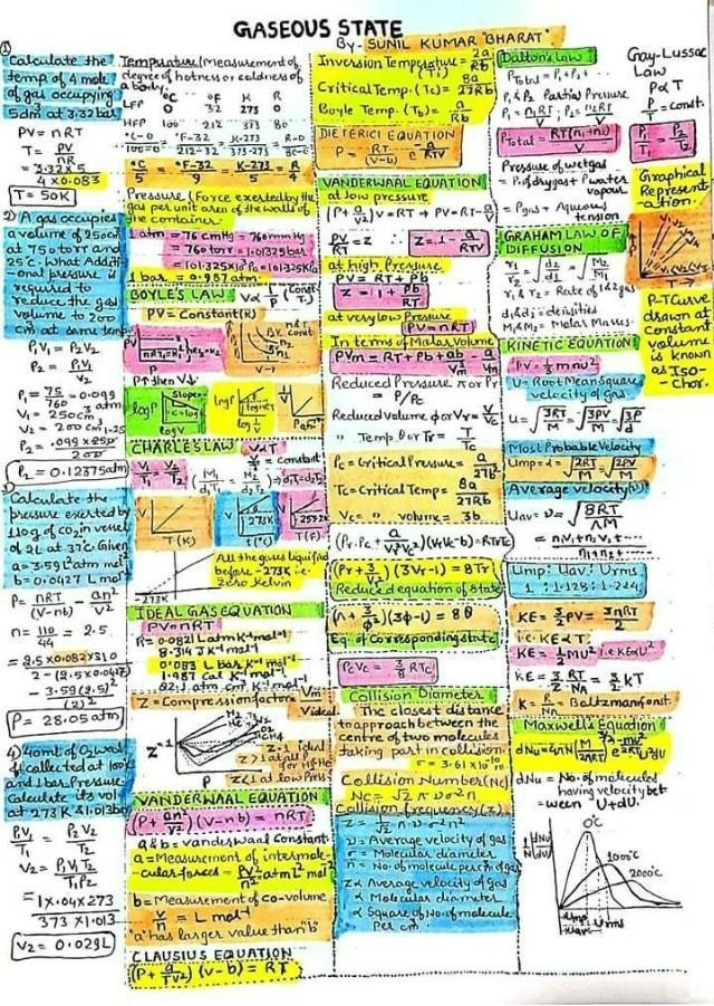 GASEOUS STATE
By- SUNIL KUMAR "BHARAT"
1)
Calculate the
temp of 4 mole
of gas occupying
5dm³ at 3.32bar
PV = nRT
T = PV/nR
= 3.32 × 5 / 4 × 0.083
T = 50K
2) A gas occupies
a volume of 250cm³
at 750torr and
25°C. What Additi-
-onal pressure is
required to
reduce the gas
volume to 200
cm³ at same temp.
P₁V₁ = P₂V₂
P₂ = P₁V₁/V₂
P₁ = 75/760 = 0.099 atm
V₁ = 250cm³
V₂ = 200cm³
P₂ = .099 × 250 / 200
P₂ = 0.12375atm
3)
Calculate the
pressure exerted by
110g of CO₂ in vessel
of 2L at 37°C. Given
a = 3.59L²atm mol⁻²
b = 0.0427 L mol⁻¹
P = nRT/(V-nb) - an²/V²
n = 110/44 = 2.5
= 2.5×0.082×310 / 2-(2.5×0.0427)
- 3.59(2.5)²/(2)²
P = 28.05atm
4) 40ml of O₂ was
collected at 100°C
and 1 bar Pressure.
Calculate its vol
at 273K & 1.013bar
P₁V₁/T₁ = P₂V₂/T₂
V₂ = P₁V₁T₂/T₁P₂
= 1×.04×273 / 373×1.013
V₂ = 0.029L
Temperature (Measurement of
degree of hotness or coldness of
a body.
°C °F K R
LFP 0 32 273 0
HFP 100 212 373 80
°C-0/100-0 = °F-32/212-32 = K-273/373-273 = R-0/80-0
°C/5 = °F-32/9 = K-273/5 = R/4
Pressure (Force exerted by the
gas per unit area of the walls of
the container.
1 atm = 76 cmHg = 760mmHg
= 760torr = 1.01325bar
= 101325Pa = 101.325KPa
1 bar = 0.987 atm
BOYLES LAW V∝ 1/P (Const T.)
PV = Constant(K)
PV
P
V→
P↑ then V↓
logP
logV
logP
log 1/V
V
CHARLES LAW V∝T
V/T = constant
V₁/T₁ = V₂/T₂ (M₁/d₁T₁ = M₂/d₂T₂) ⇒ d₁T₁=d₂T₂
V
T(K)
V
273K
t(°C)
V
T(F)
-273K
All the gases liquified
before -273K i.e.
Zero Kelvin
IDEAL GAS EQUATION
PV = nRT
R = 0.0821 L atm K⁻¹ mol⁻¹
8.314 J K⁻¹ mol⁻¹
0.083 L bar K⁻¹ mol⁻¹
1.987 Cal K⁻¹ mol⁻¹
82.1 atm cm³ K⁻¹ mol⁻¹
Z = Compression factor = Vm/Videal
Z=1
P
Z=1 Ideal
Z>1 at all P
for H₂ & He
Z<1 at low Press
VANDERWAAL EQUATION
(P + an²/V²)(V-nb) = nRT
a & b = vanderwaal Constant
a = Measurement of intermole-
-cular forces = PV²/n² = atm L² mol⁻²
b = Measurement of co-volume
V/n = L mol⁻¹
'a' has larger value than "b"
CLAUSIUS EQUATION
(P + a/TV²)(V-b) = RT
Inversion Temperature = 2a/Rb
(Ti)
Critical Temp. (Tc) = 8a/27Rb
Boyle Temp. (Tb) = a/Rb
DIETERICI EQUATION
P = RT/(V-b) e^-a/RTV
VANDERWAAL EQUATION
at low pressure
(P + a/V²)V = RT → PV = RT - a/V
PV/RT = Z ∴ Z = 1 - a/RTV
at high Pressure
PV = RT + Pb
Z = 1 + Pb/RT
at very low Pressure
PV = nRT
In terms of Molar Volume
PVm = RT + Pb + ab/Vm² - a/Vm
Reduced Pressure π or Pr
= P/Pc
Reduced volume φ or Vr = V/Vc
" Temp θ or Tr = T/Tc
Pc = Critical Pressure = a/27b²
Tc = Critical Temp = 8a/27Rb
Vc = " volume = 3b
(Pr·Pc + a/Vr²Vc²)(VrVc-b) = RTrTc
(Pr + 3/Vr²)(3Vr-1) = 8Tr
Reduced equation of state
(π + 3/φ²)(3φ-1) = 8θ
Eq. of Corresponding state
PcVc = 3/8 RTc
Collision Diameter
The closest distance
to approach between the
centre of two molecules
taking part in collision
σ = 3.61×10⁻¹⁰ m
Collision Number (Nc)
Nc = √2 π υ σ² n
Collision frequency (Z)
Z = 1/√2 π υ σ² n²
υ = Average velocity of gas
σ = Molecular diameter
n = No. of molecule per cm³ of gas
Z∝ Average velocity of gas
∝ Molecular diameter
∝ Square of No. of molecule
Per cm³
Dalton's law:
PTotal = P₁+P₂+ ...
P₁ & P₂ Partial Pressure
P₁ = n₁RT/V ; P₂ = n₂RT/V
PTotal = RT(n₁+n₂)/V
Pressure of wet gas
= P. of dry gas + P water
vapour
= Pgas + Aqueous
tension
GRAHAM LAW OF
DIFFUSION
r₁/r₂ = √d₂/d₁ = √M₂/M₁
r₁ & r₂ = Rate of 1&2 gas
d₁ & d₂ = densities
M₁ & M₂ = Molar Masses
KINETIC EQUATION
PV = 1/3 mnu²
U = Root Mean Square
velocity of gas
U = √3RT/M = √3PV/M = √3P/d
Most Probable Velocity
Ump = α = √2RT/M = √2PV/M
Average velocity (υ)
Uav = υ = √8RT/ΛM
= n₁V₁+n₂V₂+.../n₁+n₂+...
Ump : Uav : Urms
1 : 1.128 : 1.224
KE = 3/2 PV = 3nRT/2
i.e. KE∝T
KE = 1/2 MU² i.e KE∝U²
KE = 3/2 RT/NA = 3/2 kT
K = R/NA = Boltzman Const.
Maxwell's Equation
dNu = No. of molecules
having velocity bet
-ween U + dU.
1/N [dNu/dU]
0°C
1000°C
2000°C
Ump
Uav
Urms
Gay-Lussac
Law
P∝T
P/T = const.
P₁/T₁ = P₂/T₂
Graphical
Represent
-ation.
P
T→
P-T Curve
drawn at
constant
volume
is known
as ISO-
-Chor.